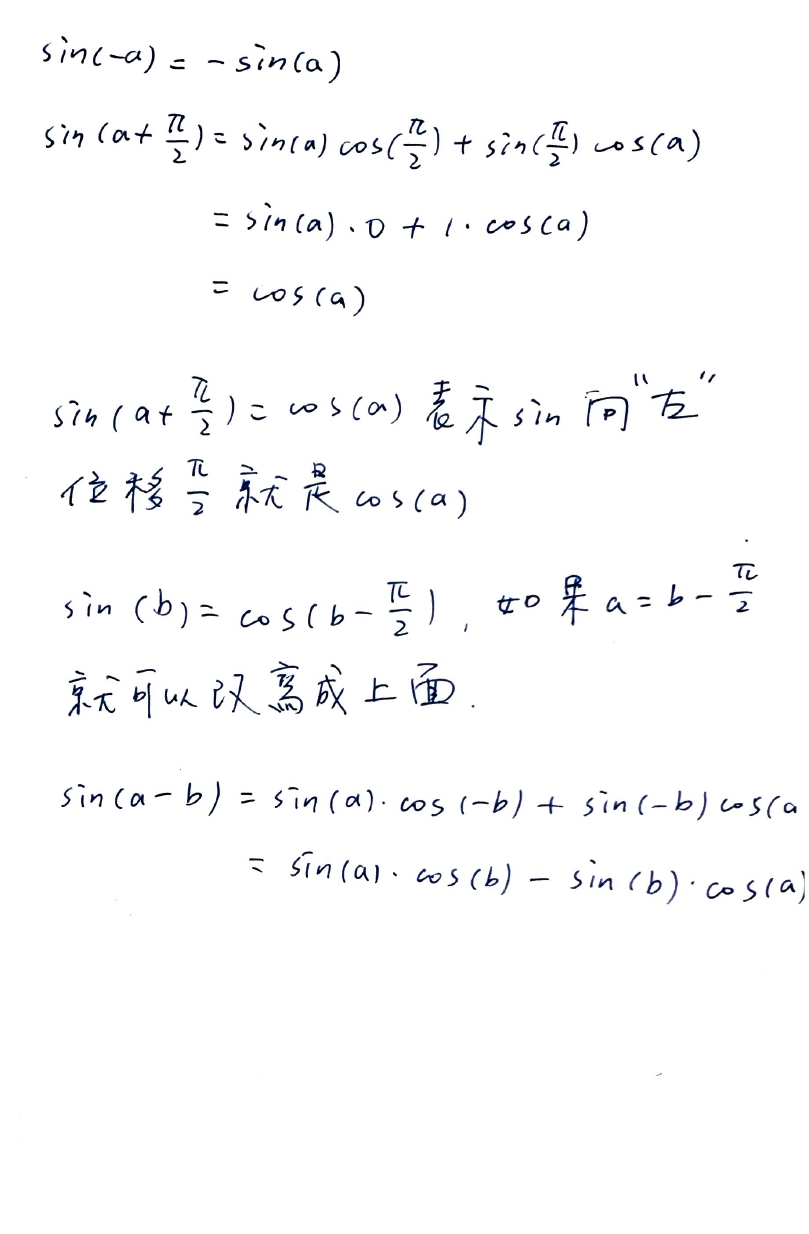 sin(-a) = - sin(a)
sin(a+ π/2) = sin(a) cos(π/2) + sin(π/2) cos(a)
= sin(a)·0 + 1·cos(a)
= cos(a)
sin(a+ π/2) = cos(a) 表示 sin 向"左"
位移 π/2 就是 cos(a)
sin (b) = cos(b- π/2), 如果 a = b - π/2
就可以改寫成上面.
sin(a-b) = sin(a)·cos(-b) + sin(-b) cos(a
= sin(a)·cos(b) - sin(b)·cos(a)